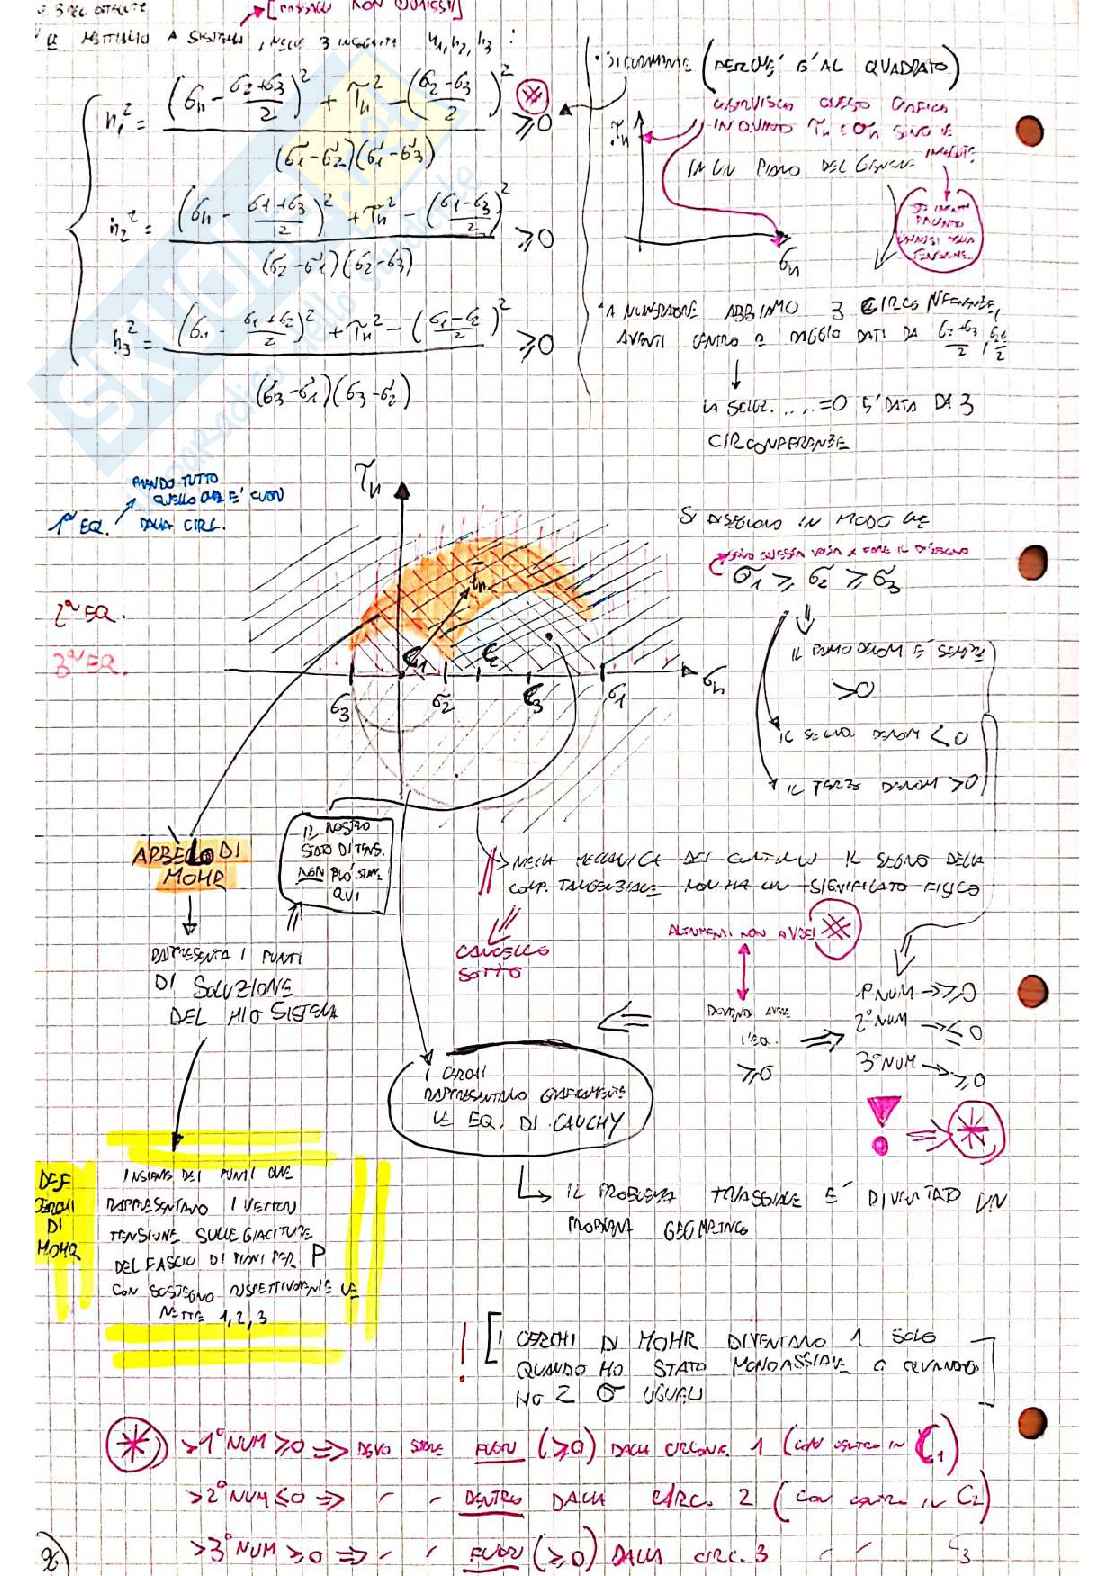 [PASSAGGI NON CHIESTI]
LE METTIAMO A SISTEMA, NELLE 3 INCOGNITE n1, n2, n3 :
n1² = ((σn - (σ2+σ3)/2)² + τn² - ((σ2-σ3)/2)²) / ((σ1-σ2)(σ1-σ3)) ≥0
n2² = ((σn - (σ1+σ3)/2)² + τn² - ((σ1-σ3)/2)²) / ((σ2-σ1)(σ2-σ3)) ≥0
n3² = ((σn - (σ1+σ2)/2)² + τn² - ((σ1-σ2)/2)²) / ((σ3-σ1)(σ3-σ2)) ≥0
SICURAMENTE (PERCHÉ È AL QUADRATO)
COSTRUISCO QUESTO GRAFICO
IN QUANTO τn E σn SONO LE
INCOGNITE
IN UN PIANO DEL GENERE
TENSIONE
τn
σn
A NUMERATORE ABBIAMO 3 CIRCONFERENZE,
AVENTI CENTRO E RAGGIO DATI DA (σ2+σ3)/2 ,
LA SOLUZ. .... =0 E' DATA DA 3
CIRCONFERENZE
PRENDO TUTTO
QUELLO CHE E' FUORI
DALLA CIRC.
1ª EQ.
2ª EQ.
3ª EQ.
τn
tn
C1
C2
C3
σ3
σ2
σ1
σn
SI DISEGNANO IN MODO CHE
σ1 ≥ σ2 ≥ σ3
IL PRIMO DENOM E' SEMPRE
>0
IL SECONDO DENOM <0
IL TERZO DENOM >0
ARBELO DI
MOHR
IL NOSTRO
STATO DI TENS.
NON PUÒ STARE
QUI
RAPPRESENTA I PUNTI
DI SOLUZIONE
DEL MIO SISTEMA
NELLA MECCANICA DEL CONTINUO IL SEGNO DELLA
COMP. TANGENZIALE NON HA UN SIGNIFICATO FISICO
CANCELLO
SOTTO
ALTRIMENTI NON AVREI
DOVENDO AVERE
l'EQ.
≥0
1° NUM → ≥0
2° NUM → ≤0
3° NUM → ≥0
I CERCHI
RAPPRESENTANO GRAFICAMENTE
LE EQ. DI CAUCHY
IL PROBLEMA TRIASSIALE E' DIVENTATO UN
PROBLEMA GEOMETRICO
DEF
CERCHI
DI
MOHR
INSIEME DEI PUNTI CHE
RAPPRESENTANO I VETTORI
TENSIONE SULLE GIACITURE
DEL FASCIO DI PIANI PER P
CON SOSTEGNO RISPETTIVAMENTE LE
RETTE 1, 2, 3
! I CERCHI DI MOHR DIVENTANO 1 SOLO
QUANDO HO STATO MONOASSIALE O QUANDO
HO 2 σ UGUALI
>1° NUM ≥0 ⇒ DEVO STARE FUORI (≥0) DALLA CIRCONF. 1 (CON CENTRO IN C1)
>2° NUM ≤0 ⇒ " " DENTRO DALLA CIRC. 2 (CON CENTRO IN C2)
>3° NUM ≥0 ⇒ " " FUORI (≥0) DALLA CIRC. 3 " " 3